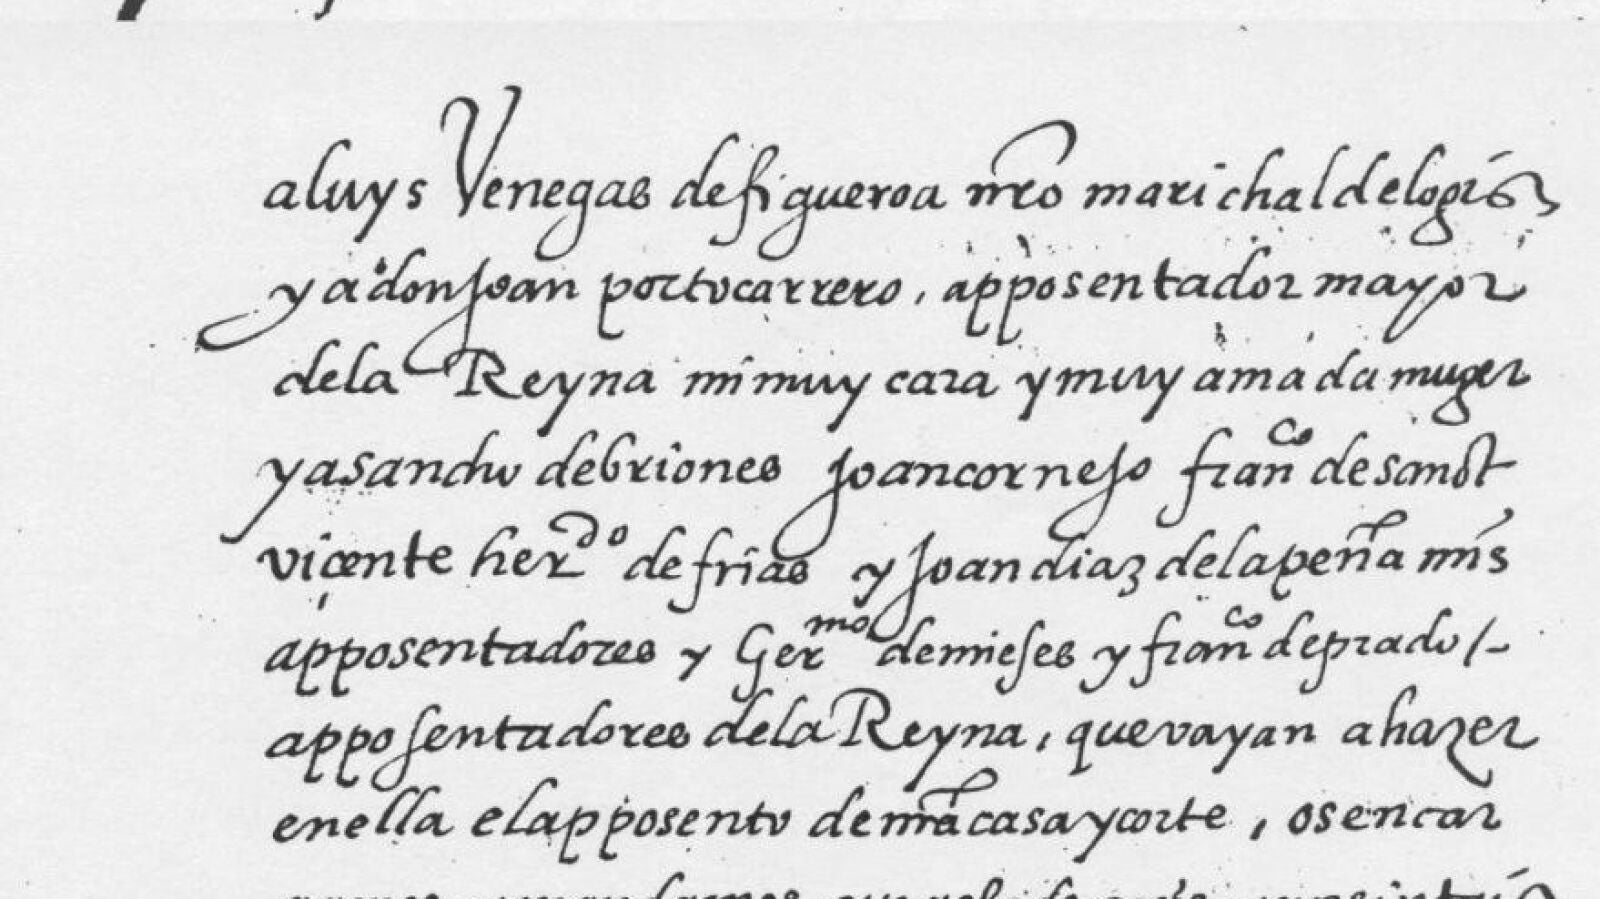 a luys Venegas de figueroa nr̃o marichal de logis
y a don Joan portocarrero, apposentador mayor
de la Reyna mi muy cara y muy amada muger
y a sancho de briones Joan cornejo fran^co de sanct
vicente her^do de frias y Joan diaz de la peña mis
apposentadores y Ger^mo de mieses y fran^co de prado /-
apposentadores de la Reyna, que vayan a hazer
en ella el apposento de nr̃a casa y corte, os encar